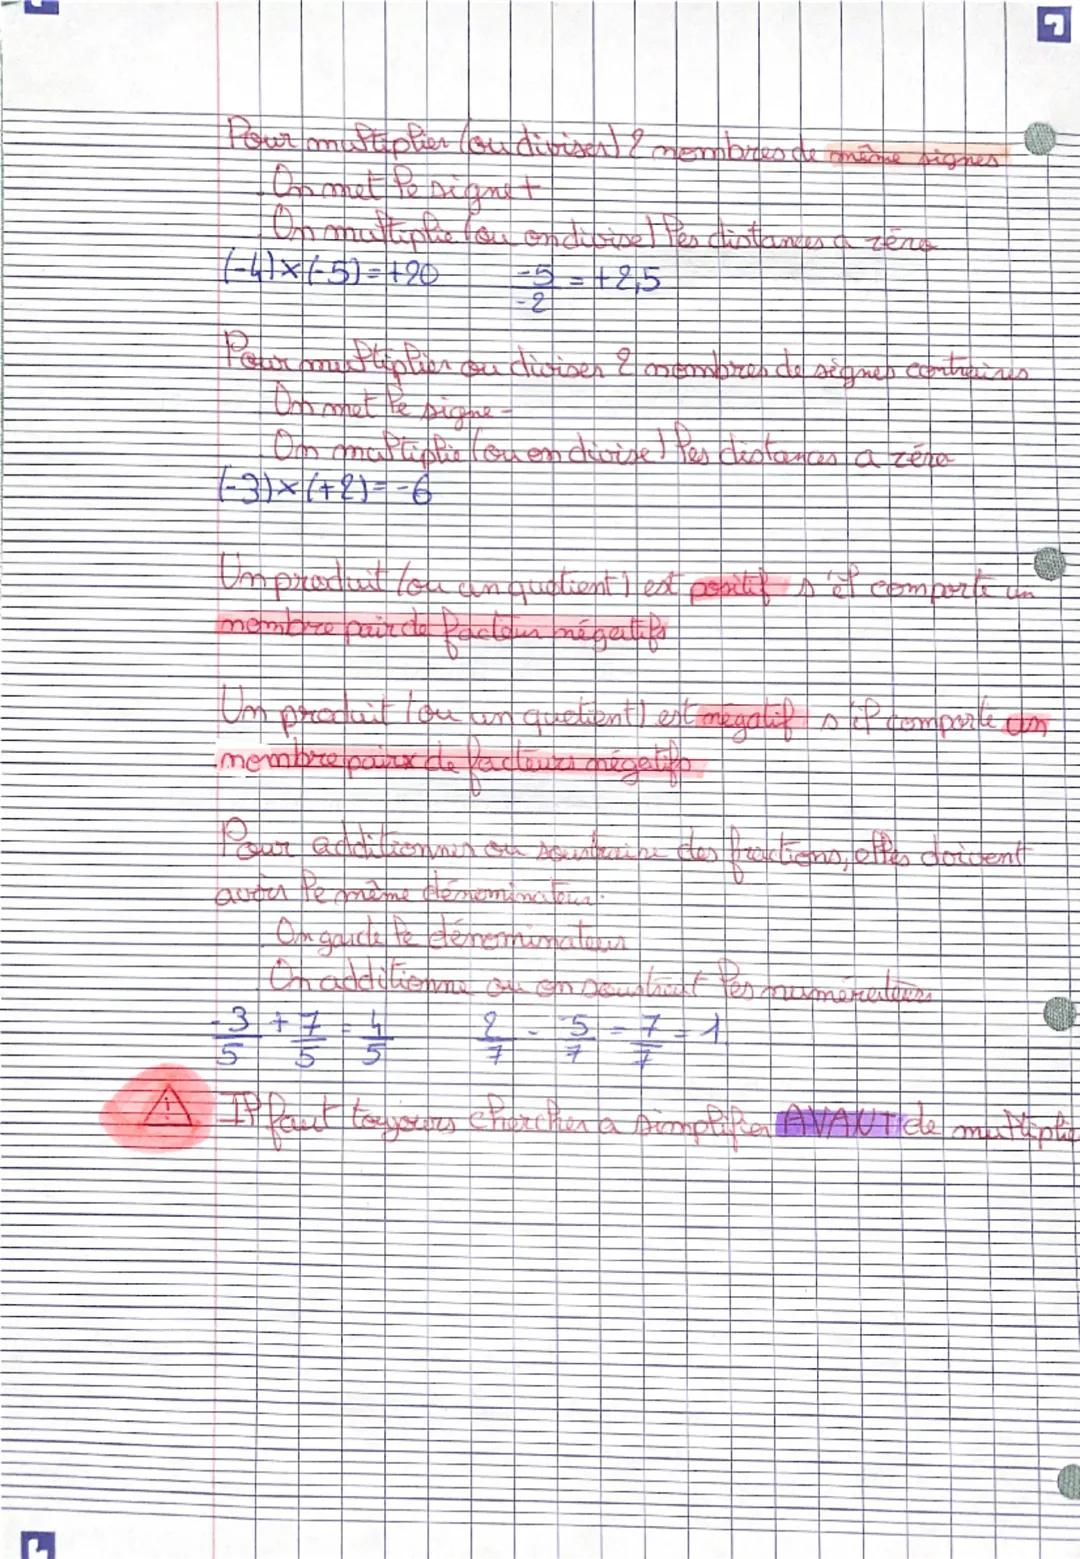 Pour multiplier (ou diviser) 2 nombres de même signes
On met le signe +
On multiplie (ou on divise) les distances a zéro
(-4)×(-5)=+20 -5/-2 = +2,5
Pour multiplier ou diviser 2 nombres de signes contraires
On met le signe -
On multiplie (ou on divise) les distances a zéro
(-3)×(+2)=-6
Un produit (ou un quotient) est positif s'il comporte un
nombre pair de facteur négatifs
Un produit (ou un quotient) est négatif s'il comporte un
nombre pairx de facteurs négatifs
Pour additionner ou soustraire des fractions, elles doivent
avoir le même dénominateur.
On garde le dénominateur
On additionne ou on soustrait les numérateurs
-3/5 + 7/5 = 4/5 2/7 - -5/7 = 7/7 = 1
Il faut toujours chercher a simplifier AVANT de multiplie